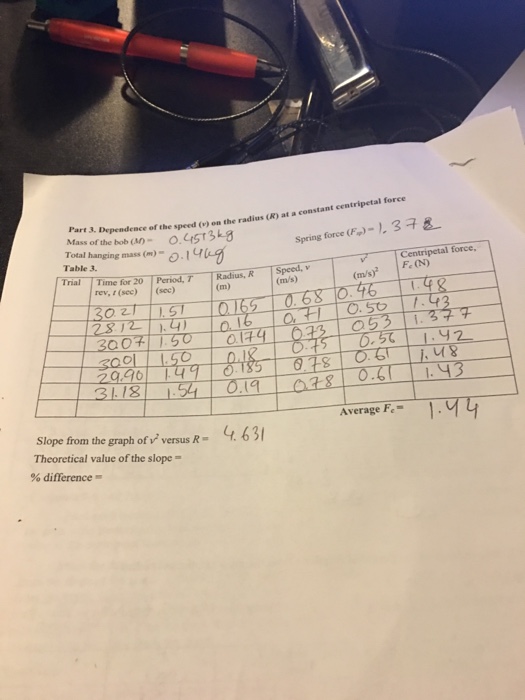 Part 3. Dependence of the speed (v) on the radius (R) at a constant centripetal force
Mass of the bob (M) = 0.4513kg
Spring force (Fsp) = 1.372
Total hanging mass (m) = 0.14kg
Table 3.
Trial | Time for 20 rev, t (sec) | Period, T (sec) | Radius, R (m) | Speed, v (m/s) | v² (m/s)² | Centripetal force, Fc (N)
30.21 | 1.51 | 0.165 | 0.68 | 0.46 | 1.48
28.12 | 1.41 | 0.16 | 0.71 | 0.50 | 1.43
30.07 | 1.50 | 0.174 | 0.73 | 0.53 | 1.377
30.01 | 1.50 | 0.18 | 0.75 | 0.56 | 1.42
29.90 | 1.49 | 0.185 | 0.78 | 0.61 | 1.48
31.18 | 1.54 | 0.19 | 0.78 | 0.61 | 1.43
Average Fc = 1.44
Slope from the graph of v² versus R = 4.631
Theoretical value of the slope =
% difference =